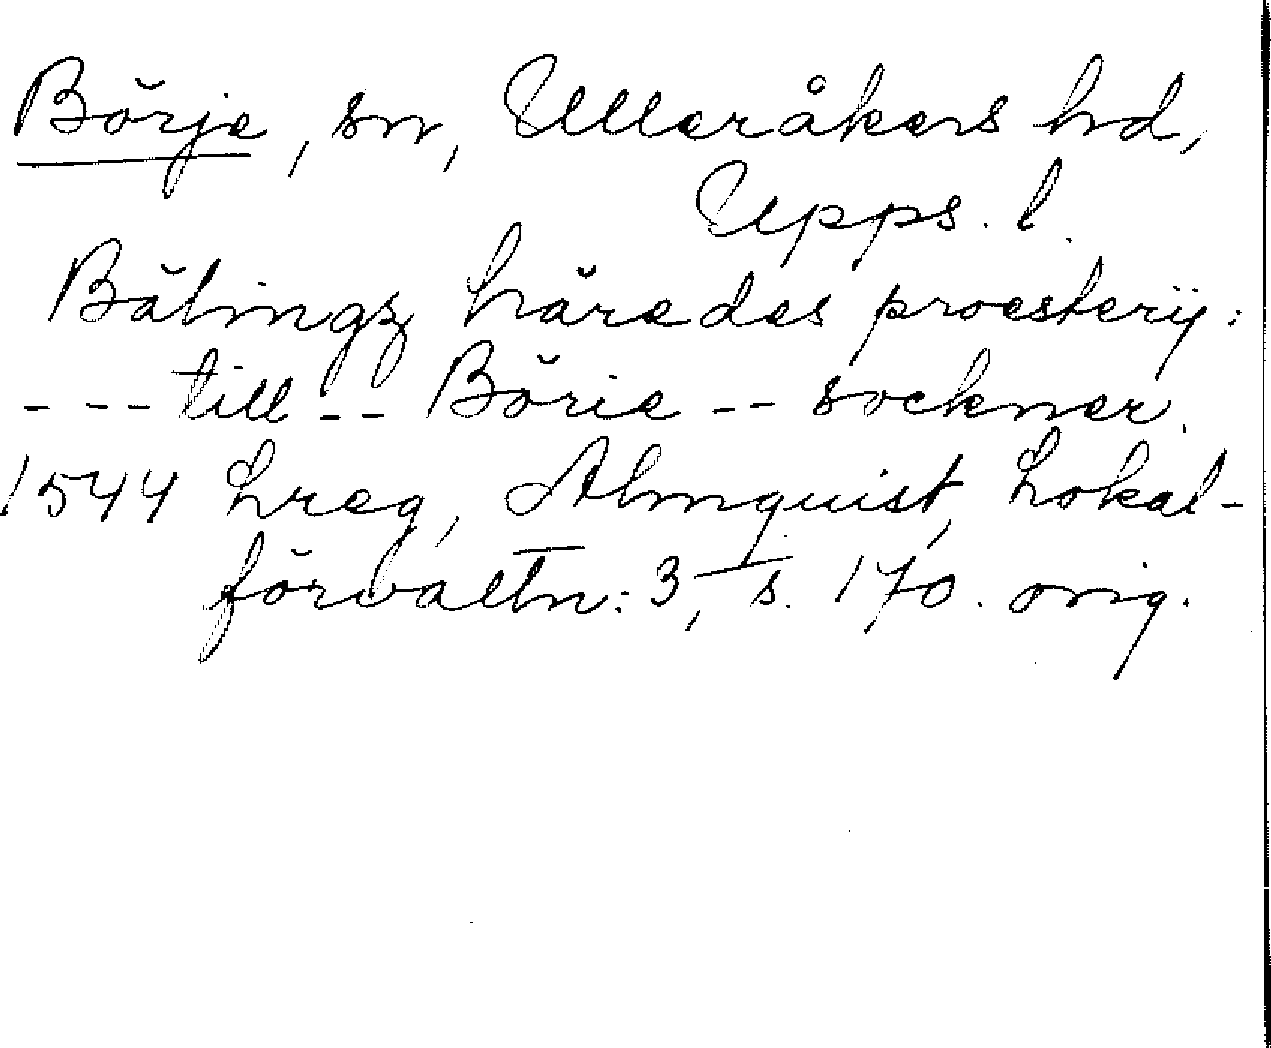 Börje, sn, Ulleråkers hd,
Upps. l.
Bälingz häredes proesterij:
--- till -- Börie -- sockner.
1544 Lreg, Almquist, Lokal-
förvaltn: 3, s. 170. orig.